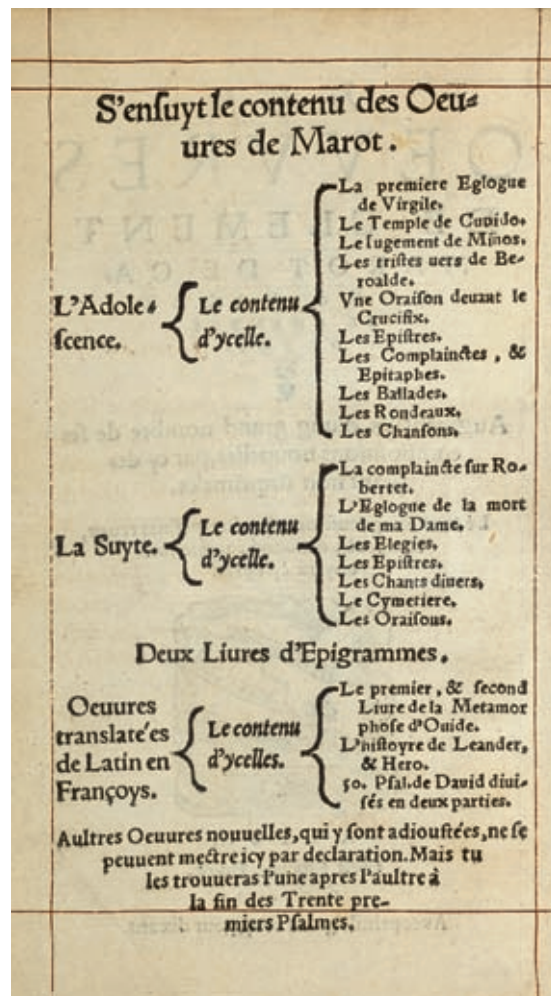 S'enſuyt le contenu des Oeu-
ures de Marot.
L'Adole-
ſcence.
Le contenu
d'ycelle.
La premiere Eglogue
de Virgile.
Le Temple de Cupido.
Le Iugement de Minos.
Les triſtes uers de Be-
roalde.
Vne Oraiſon deuant le
Crucifix.
Les Epiſtres.
Les Complainctes, &
Epitaphes.
Les Ballades.
Les Rondeaux.
Les Chanſons.
La Suyte.
Le contenu
d'ycelle.
La complaincte ſur Ro-
bertet.
L'Eglogue de la mort
de ma Dame.
Les Elegies.
Les Epiſtres.
Les Chants diuers.
Le Cymetiere.
Les Oraiſons.
Deux Liures d'Epigrammes.
Oeuures
translate'es
de Latin en
Françoys.
Le contenu
d'ycelles.
Le premier, & ſecond
Liure de la Metamor
phoſe d'Ouide.
L'hiſtoyre de Leander,
& Hero.
50. Pſal. de Dauid diui-
ſés en deux parties.
Aultres Oeuures nouuelles, qui y ſont adiouſtées, ne ſe
peuuent mectre icy par declaration. Mais tu
les trouueras l'une apres l'aultre à
la fin des Trente pre-
miers Pſalmes.